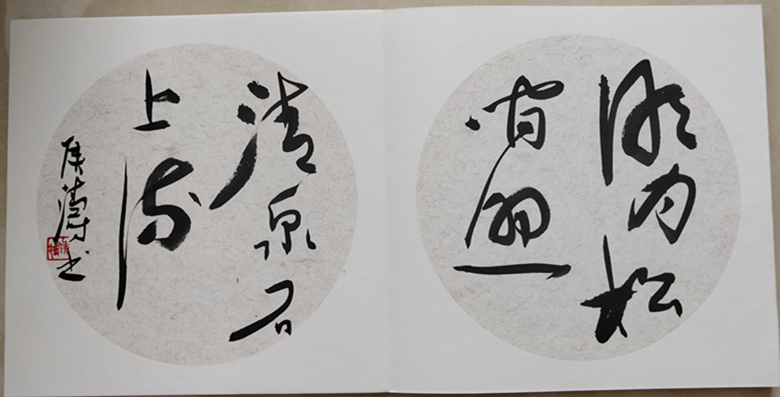 明月松
间照
清泉石
上流
庆涛书